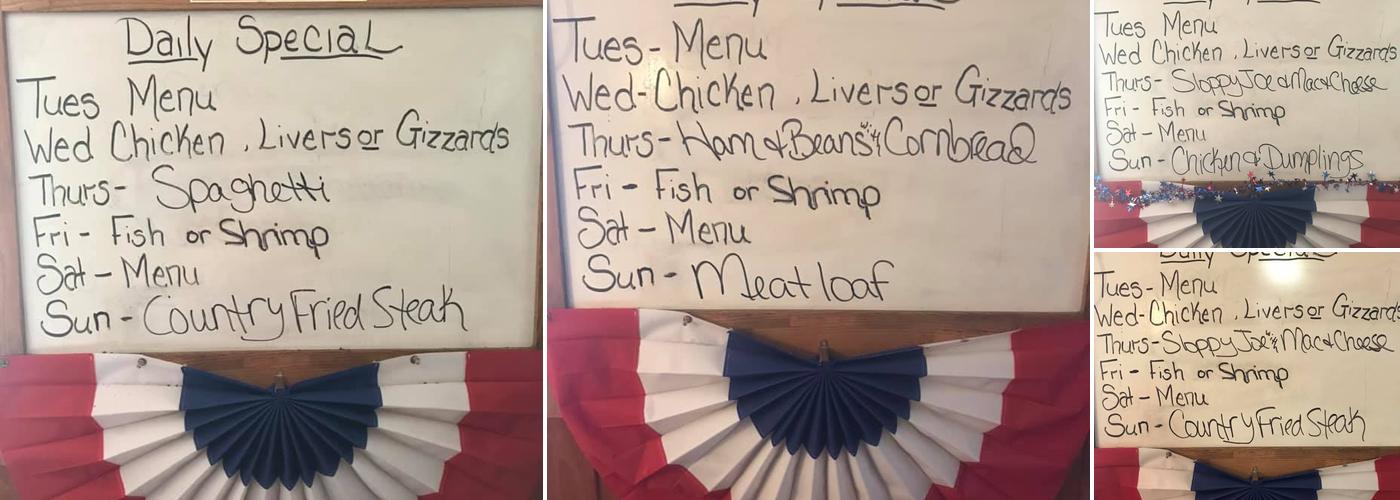 Daily Special
Tues Menu
Wed Chicken , Livers or Gizzards
Thurs- Spaghetti
Fri- Fish or Shrimp
Sat- Menu
Sun- Country Fried Steak
Tues- Menu
Wed-Chicken , Livers or Gizzards
Thurs- Ham & Beans & Cornbread
Fri- Fish or Shrimp
Sat- Menu
Sun- Meatloaf
Tues Menu
Wed Chicken , Livers or Gizzards
Thurs- Sloppy Joe & Mac & Cheese
Fri- Fish or Shrimp
Sat- Menu
Sun- Chicken & Dumplings
Daily Special
Tues- Menu
Wed-Chicken , Livers or Gizzards
Thurs-Sloppy Joe & Mac & Cheese
Fri- Fish or Shrimp
Sat- Menu
Sun- Country Fried Steak